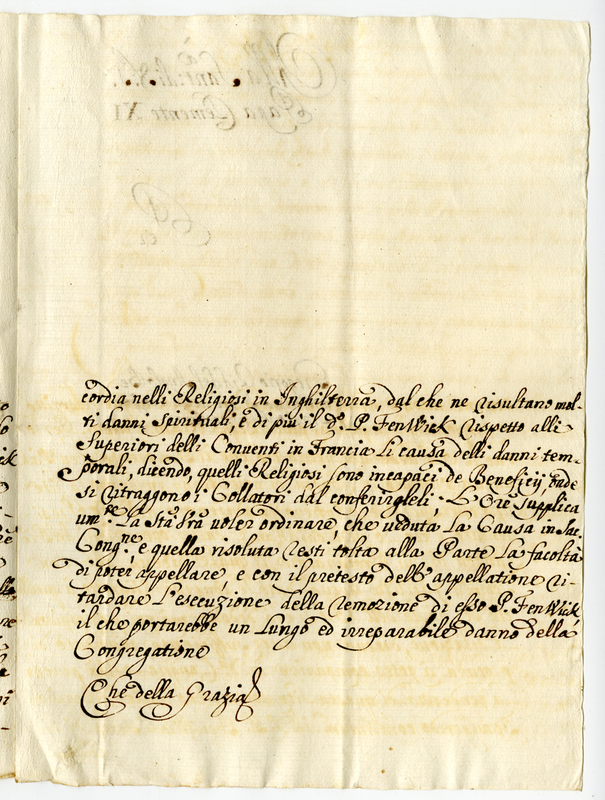 cordia nelli Religiosi in Inghilterra, dal che ne risultano mol-
ti danni spirituali, e di più il dº. P. FenWick rispetto alli
Superiori delli Conventi in Francia Li causa delli danni tem-
porali, dicendo, quelli Religiosi sono incapaci de Beneficij, onde
si ritraggono i Collatori dal conferirgleli; L'Ore supplica
umᵗᵉ. La Stà Vrã voler ordinare, che veduta La Causa in Sac.
Congⁿᵉ. e quella risoluta resti tolta alla Parte La facoltà
di poter appellare, e con il pretesto dell'appellatione ri-
tardare L'esecuzione della remozione di esso P. FenWick
il che portarebbe un Lungo ed irreparabile danno della
Congregatione
Che della Grazia